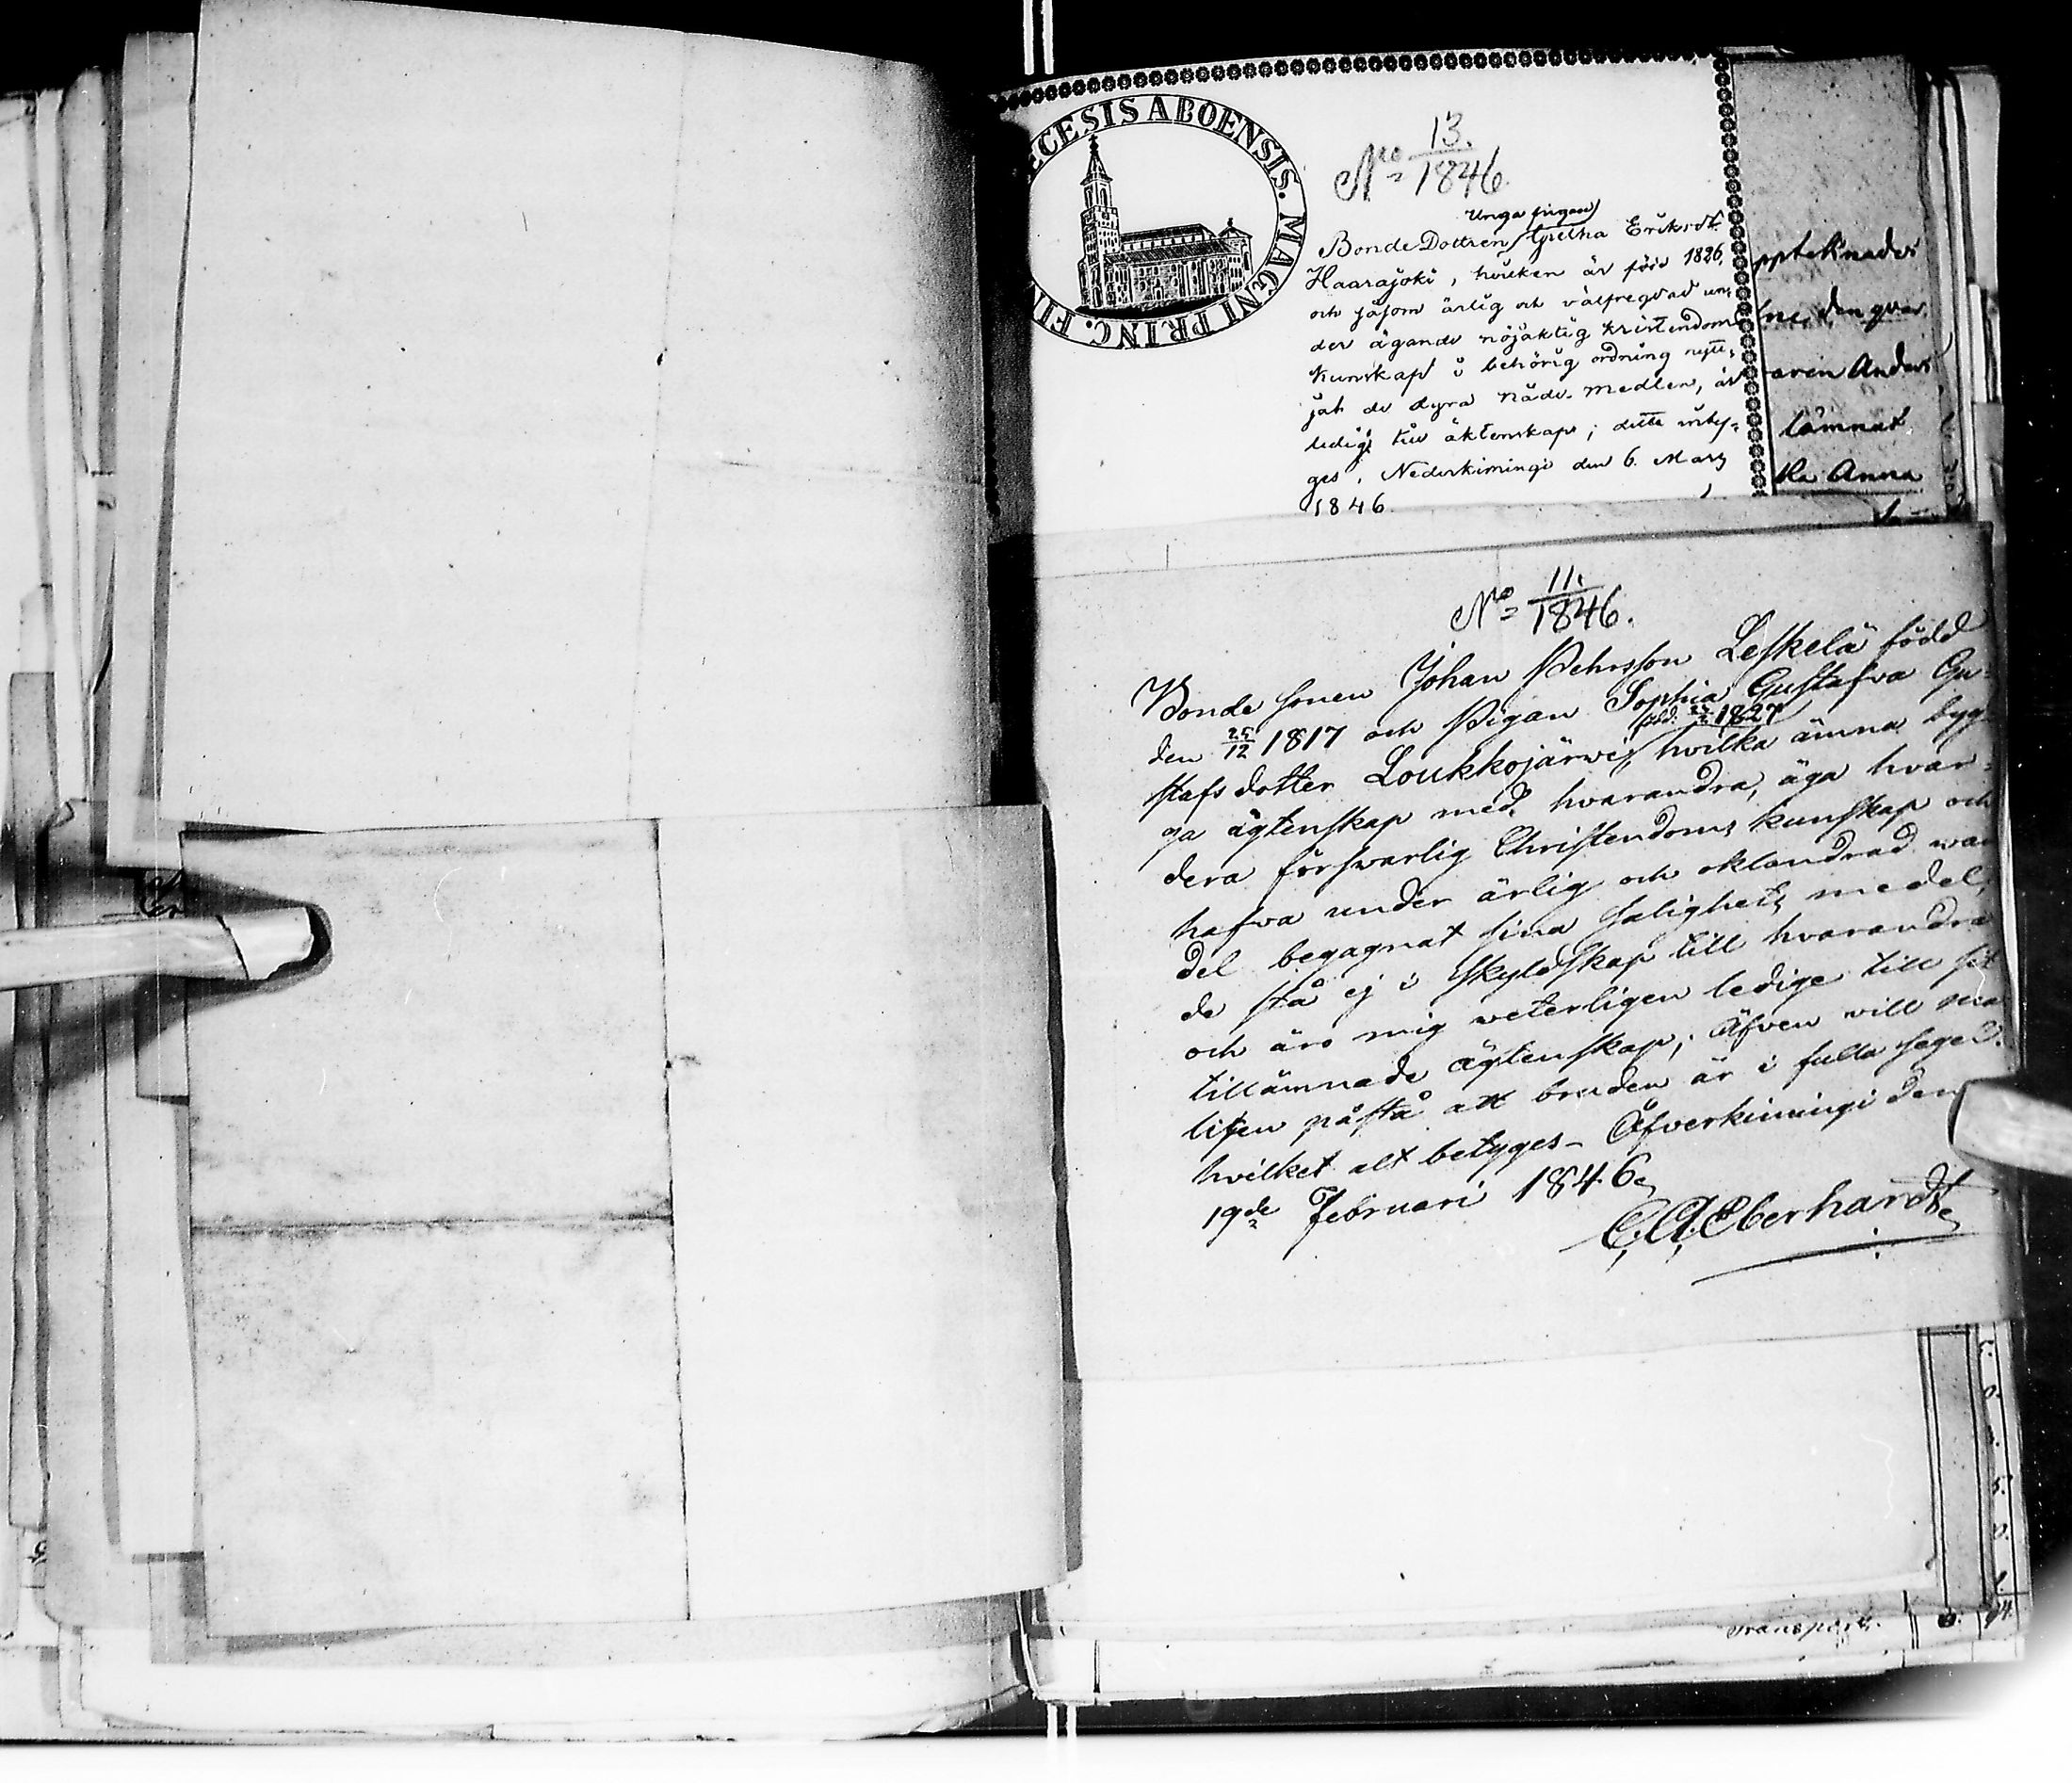 ECESIS ABOENSIS. MAGNI PRINC. FIN
No 13./1846.
Unga pigan
Bonde Dottren Gretha Eriksdr
Haarajoki, hvilken är född 1826,
och såsom ärlig och välfregdad un-
der ägande nöjaktig kristendoms
kunskap i behörig ordning nytt-
jat de dyra nåde-medlen, är
ledig till äktenskap; detta intyg-
ges, Nederkimingi den 6. Mars
1846.
ppteknades
ne, den qvar
aren Anders
lämnat
ka Anna
No 11./1846.
Bonde sonen Johan Pehrsson Leskelä född
den 25/12 1817 och Pigan Sophia Gustafva Gu-
född 1827
stafs dotter Loukkojärwi, hvilka ämna byg
ga ägtenskap med hvarandra, äga hvar-
dera försvarlig Christendoms kunskap och
hafva under ärlig och oklandrad wan
del begagnat sina salighets medel,
de stå ej i skyldskap till hvarandra
och äro mig veterligen ledige till sit
tillämnade ägtenskap; Äfven vill ma
liken påstå att bruden är i fulla segel.
hvilket alt betyges – Öfverkimingi den
19de Februari 1846.
C. A. Eberhardt
Transport.